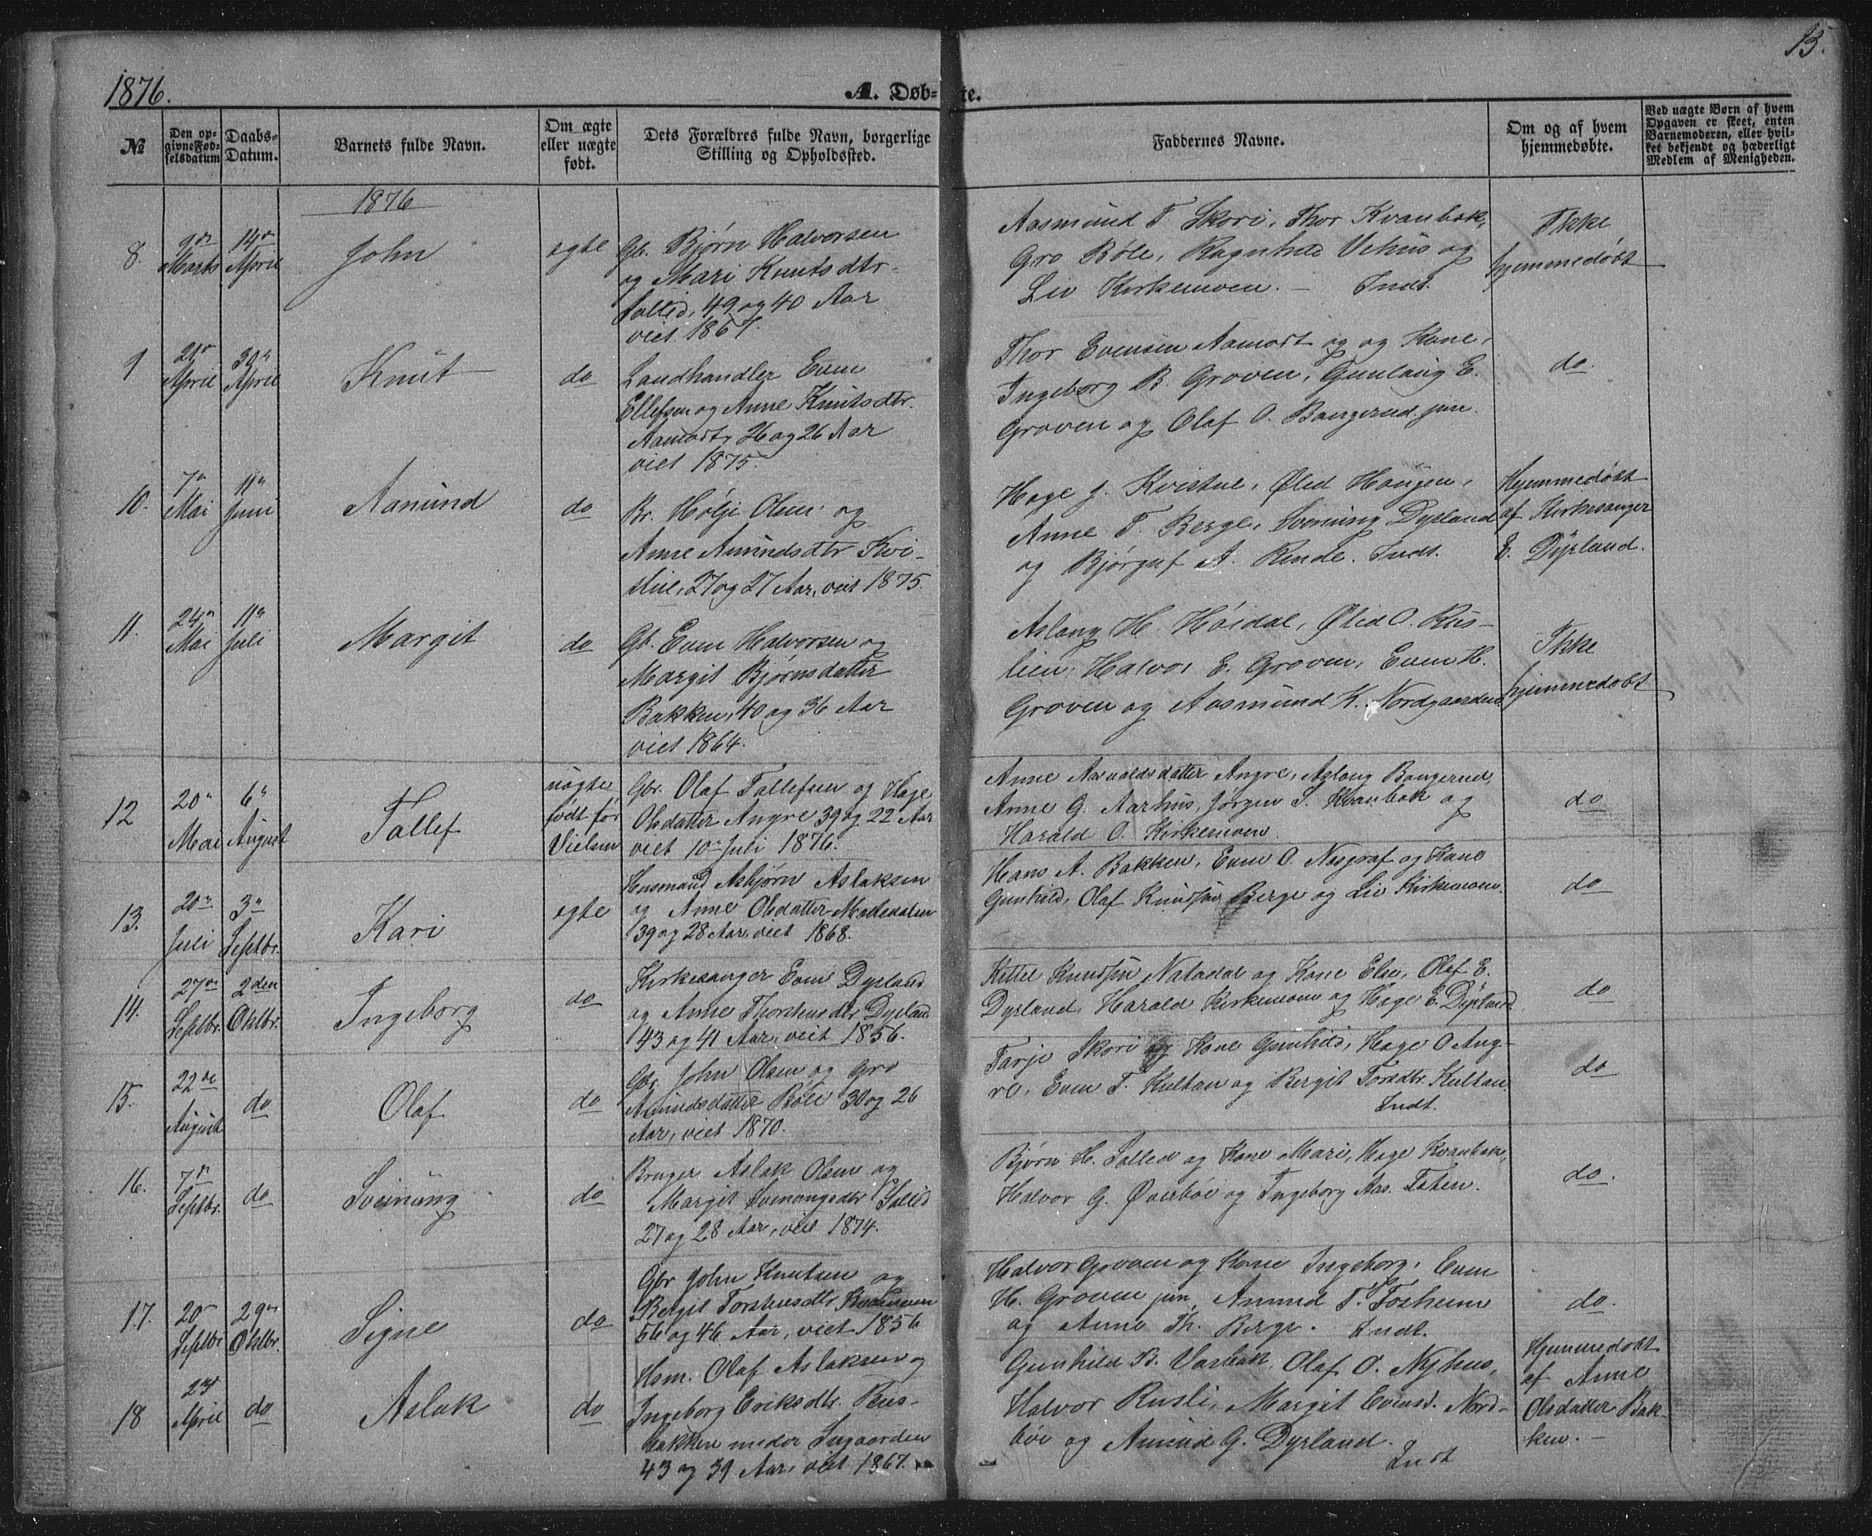 1876.
A. Døb-
te.
13.
№
Den op-
givne Fød-
selsdatum
Daabs-
Datum.
Barnets fulde Navn.
Om ægte
eller uægte
født.
Dets Forældres fulde Navn, borgerlige
Stilling og Opholdssted.
Faddernes Navne.
Om og af hvem
hjemmedøbte.
Ved uægte Børn af hvem
Opgaven er skeet, enten
Barnemoderen, eller hvil-
ket bekjendt og hæderligt
Medlem af Menigheden.
1876
8.
Marts
14de
April
John
egte
Gb. Bjørn Halvorsen
og Mari Knutsdtr
49 og 40 Aar
viet 1867.
Aasmund T. Skori, Thor Kvanbæk,
Gro Bøle, Ragnhild Vehus og
Liv Kirkemoen. — Indt.
Ikke
hjemmedøbt
9
21de
April
30te
April
Knut
do
Landhandler Even
Ellefsen og Anne Knutsdtr.
Aamodt, 26 og 26 Aar
viet 1875.
Thor Evensen Aamodt og og Kone,
Ingeborg B. Groven, Gunlaug E.
Groven og Olaf O. Baugerud jun.
do.
10.
7de
Mai
11te
Juni
Aamund
do
Br. Hølje Olsen og
Anne Amundsdtr Kvi-
stue, 27 og 27 Aar, viet 1875.
Hage J. Kvistue, Øled Haugen,
Anne T. Berge, Svenung Dyrland
og Bjørguf A. Rinde. Indt.
Hjemmedøbt
af Kirkesanger
E. Dyrland.
11.
24de
Mai
11te
Juli
Margit
do
Gb. Even Halvorsen og
Margit Bjørnsdatter
Bakken, 40 og 36 Aar
viet 1864.
Aslaug H. Høidal, Øled O. Rus-
lien, Halvor E. Groven, Even H.
Groven og Aasmund K. Nordgaarden
Ikke
hjemmedøbt
12
20de
Mai
6te
August
Tallef
uægte
født før
Vielsen
Gbr. Olaf Tallefsen og Hage
Olsdatter Angre 39 og 22 Aar
viet 10de Juli 1876.
Anne Aasvoldsdatter Angre, Aslaug Baugerud,
Anne G. Aarhus, Jørgen S. Kvanbæk og
Harald O. Kirkemoen.
do
13.
20de
Juli
3de
Septbr.
Kari
egte
Husmand Asbjørn Aslaksen
og Anne Olsdatter
39 og 28 Aar, viet 1868.
Hans A. Bakken, Even O. Næsgraf og Kone
Gunhild, Olaf Knudsen Berge og Liv Kirkemoen.
do
14.
27de
Septbr.
2den
Oktbr.
Ingeborg
do
Kirkesanger Even Dyrland
og Anne Thorsteinsdtr Dyrland
43 og 41 Aar, viet 1856.
Kittel Knudsen Natadal og Kone Else, Olaf E.
Dyrland, Harald Kirkemoen og Hage E. Dyrland
do
15.
22de
August
do
Olaf
do
Gbr. John Olsen og Gro
Amundsdatter Bøle 30 og 26
Aar, viet 1870.
Tarje Skori og Kone Gunhild, Hage O. Ang-
re, Even T. Kultan og Bergit Torsdtr. Kultan
Indt.
do
16.
7de
Septbr.
do
Sveinung
do
Bruger Aslak Olsen og
Margit Svenungsdtr Sollid
27 og 28 Aar, viet 1874.
Bjørn H. Sollid og Kone Mari, Hage Kvanbæk,
Halvor G. Øverbøe og Ingeborg Aas. Foten.
do.
17.
20de
Septbr
29de
Oktbr.
Signe
do
Gbr John Knutsen og
Bergit Torsteinsdtr.
56 og 46 Aar, viet 1856
Halvor Groven og Kone Ingeborg, Even
H. Groven jun, Amund T. Fosheim
og Anne Th. Berge. Indt.
do.
18
23de
April
do
Aslak
do
Hsm. Olaf Aslaksen og
Ingeborg Eriksdtr. Rus-
bakken under Sugaarden
43 og 39 Aar, viet 1867.
Gunhild B. Vasbæk, Olaf O. Nyhus,
Halvor Rusli, Margit Evensd. Nord-
bøe og Amund G. Dyrland.
Indt
Hjemmedøbt
af Anne
Olsdatter Bak-
ken.